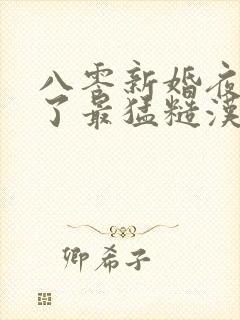 八零新婚夜
了最猛糙漢
卿希子